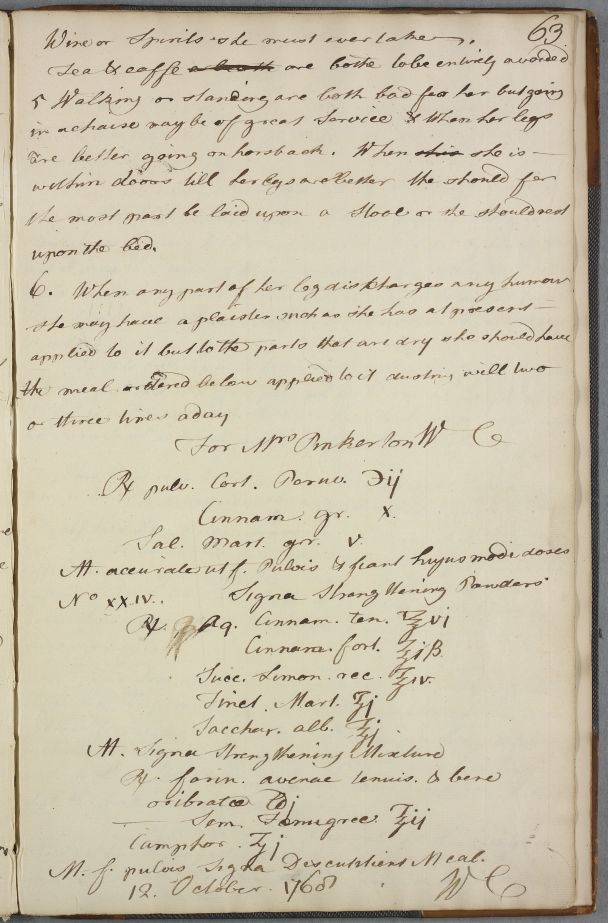 63
Wine or Spirits she must ever take.
Tea & coffe a broth are bothe to be entirely avoided
5 Walking or standing are both bad for her but going
in a chaise may be of great Service & when her legs
are better going on horsback. When this she is —
within doors till her legs are better the should for
the most part be laid upon a Stool or she should rest
upon the bed.
6. When any part of her leg discharges any humour
she may have a plaister such as she has at present —
applied to it but to the parts that are dry she should have
the meal ordered below applied to it dusting will two
or three times a day
For Mrs Pinkerton W C
℞ pulv. Cort. Peruv. ℈ij
Cinnam. gr. x.
Sal. Mart. gr. v.
M. accurate ut f. Pulvis & fiant hujusmodi doses
No xxiv. Signa Strengthening Powders
℞. Aq. Cinnam. ten. ℥vj
Cinnam. fort. ℥jß.
Succ. Limon. rec. ℥iv.
Tinct. Mart. ℥j
Sacchar. alb. ℥j
M. Signa Strengthening Mixture
℞. farin. avenae tenuis. & bene
cribratae ℔j
— Sem. Fenugree. ℥ij
Camphor. ℥j
M. f. pulvis Signa Discutient Meal.
12. October. 1768 W C